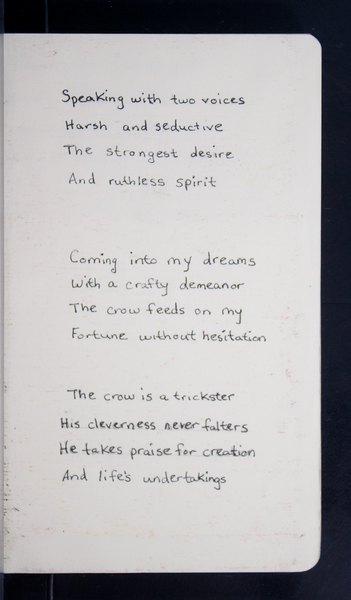 Speaking with two voices
Harsh and seductive
The strongest desire
And ruthless spirit
Coming into my dreams
With a crafty demeanor
The crow feeds on my
Fortune without hesitation
The crow is a trickster
His cleverness never falters
He takes praise for creation
And life's undertakings